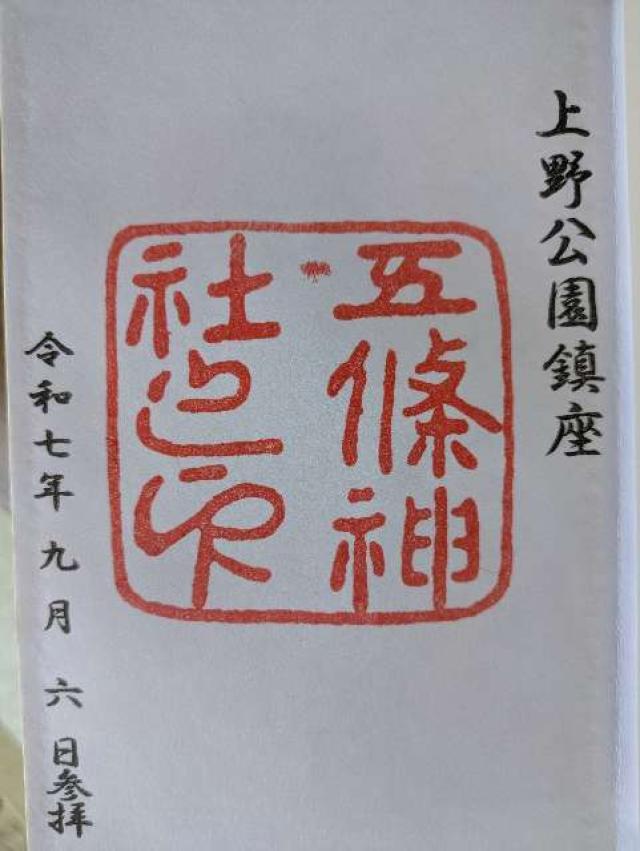 上野公園鎮座
五條神
社之印
令和七年九月六日参拝